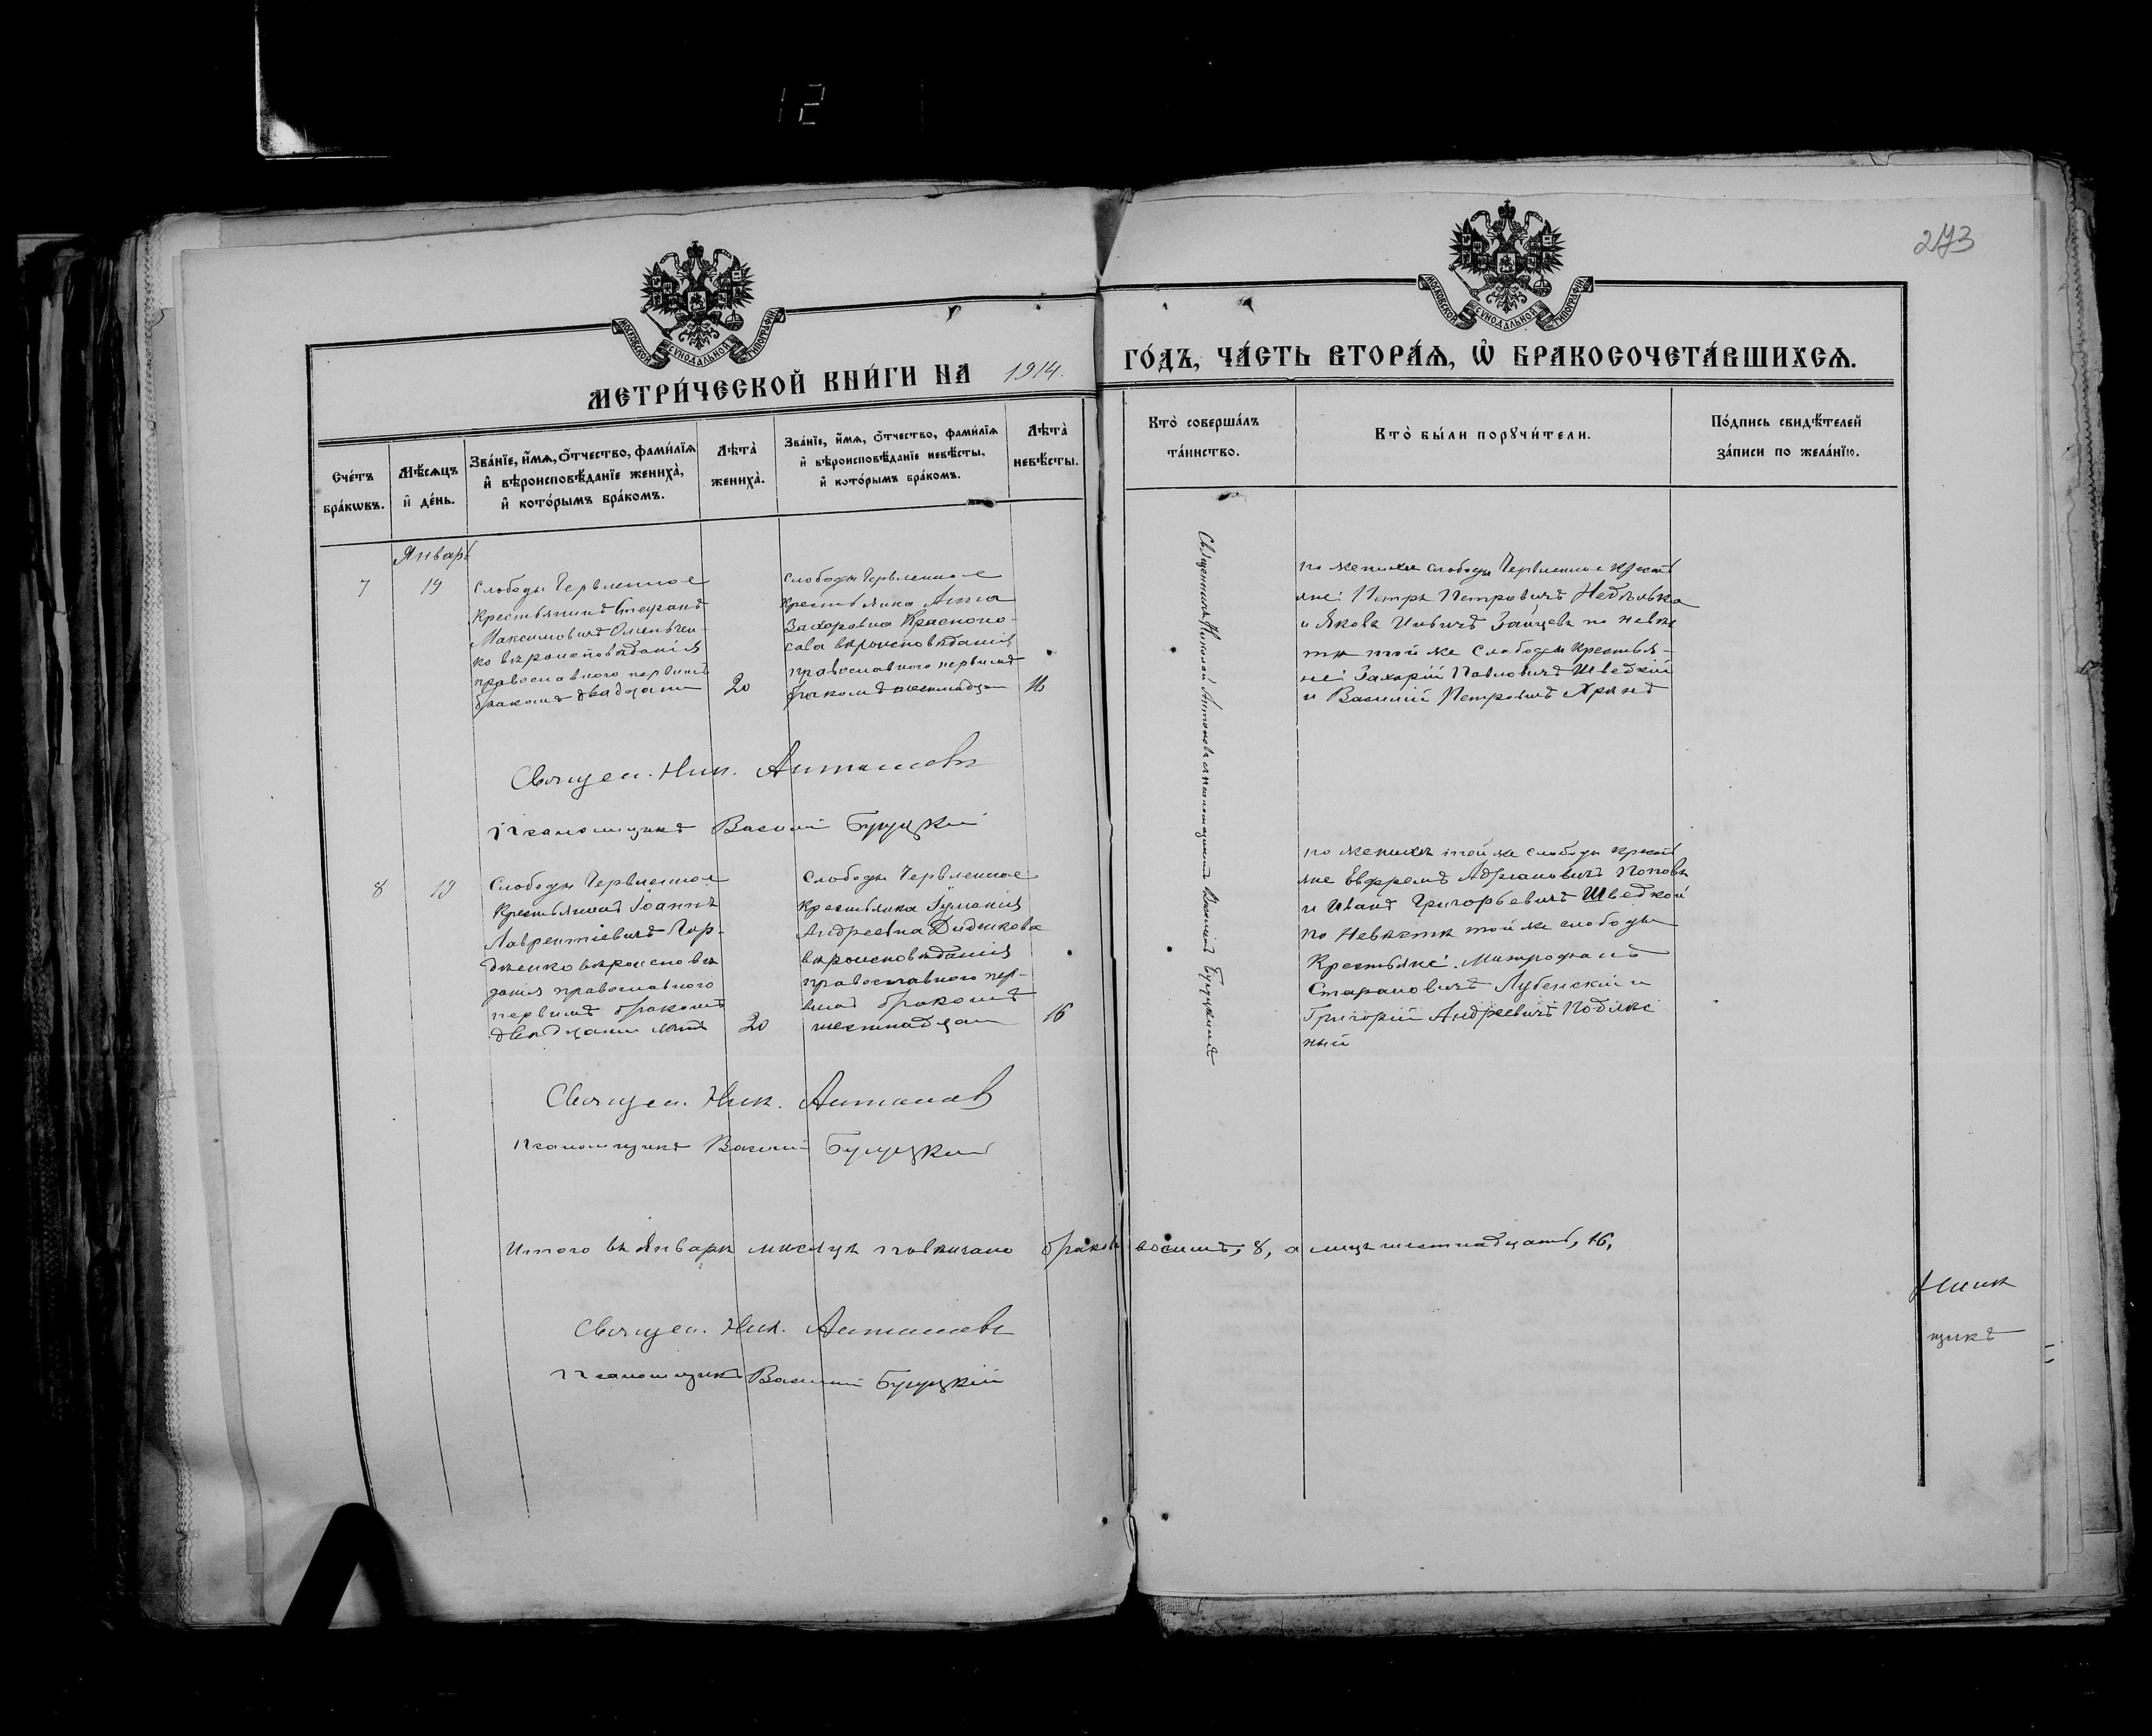 12
273
МОСКОВСКОЙ СѴНОДАЛЬНОЙ ТИПОГРАФІИ
МОСКОВСКОЙ СѴНОДАЛЬНОЙ ТИПОГРАФІИ
МЕТРИ́ЧЕСКОЙ КНИ́ГИ НА 1914. ГО́ДЪ, ЧА́СТЬ ВТОРА́Ѧ, Ѽ БРАКОСОЧЕТА́ВШИХСѦ.
Сче́тъ бра́кѡвъ.
Мѣ́сѧцъ и҆ де́нь.
Зва́нїе, и҆́мѧ, ѻ҆́тчество, фами́лїѧ и҆ вѣроисповѣ́данїе жениха̀, и҆ кото́рымъ бра́комъ.
Лѣта̀ жениха̀.
Зва́нїе, и҆́мѧ, ѻ҆́тчество, фами́лїѧ и҆ вѣроисповѣ́данїе невѣ́сты, и҆ кото́рымъ бра́комъ.
Лѣта̀ невѣ́сты.
Кто̀ соверша́лъ та́инство.
Кто̀ бы́ли порꙋчи́тели.
По́дпись свидѣ́телей за́писи по жела́нїю.
Январь
7
19
Слободы Червленное
Крестьянинъ Стефанъ
Максимовичъ
ко вѣроисповѣданія
православнаго первымъ
бракомъ двадцати
20
Слободы Червленное
Крестьянка Анна
Захаровна Красного-
вѣроисповѣданія
православного первымъ
бракомъ шестнадцати
16
Священникъ Николай Антоновъ Василій Бугуцкій
по женихи слободы Червленное крестья
яне: Петръ Петровичъ
и Яковъ Зайцевъ по невѣс
тѣ той же слободы крестья-
не: Захарій Павловичъ Шведкій
и Василій Петровичъ
Священ. Ник. Антоновъ
Псаломщикъ Василій Бугуцкій
8
19
Слободы Червленное
Крестьянинъ Іоаннъ
Лаврентіевичъ Гор-
дѣенко вѣроисповѣ
данія православного
первымъ бракомъ
двадцати лѣтъ
20
Слободы Червленное
Крестьянка
Андреевна Диденкова
вѣроисповѣданія
православного пер-
вымъ бракомъ
шестнадцати
16
по женихѣ той же слободы крестья
яне Ефремъ Адріановичъ Поповъ
и Иванъ Григорьевичъ Шведкой
по невѣстѣ той же слободы
Крестьяне: Митрофанъ
Лубенскій и
Григорій Андреевичъ
ный
Священ. Ник. Антонов
Псаломщикъ Василій Бугуцкій
Итого въ Январѣ мѣсяцѣ повѣнчано браковъ восемь, 8, а лицъ шестнадцать, 16,
Священ. Ник. Антоновъ
Псаломщикъ Василій Бугуцкій
щикъ